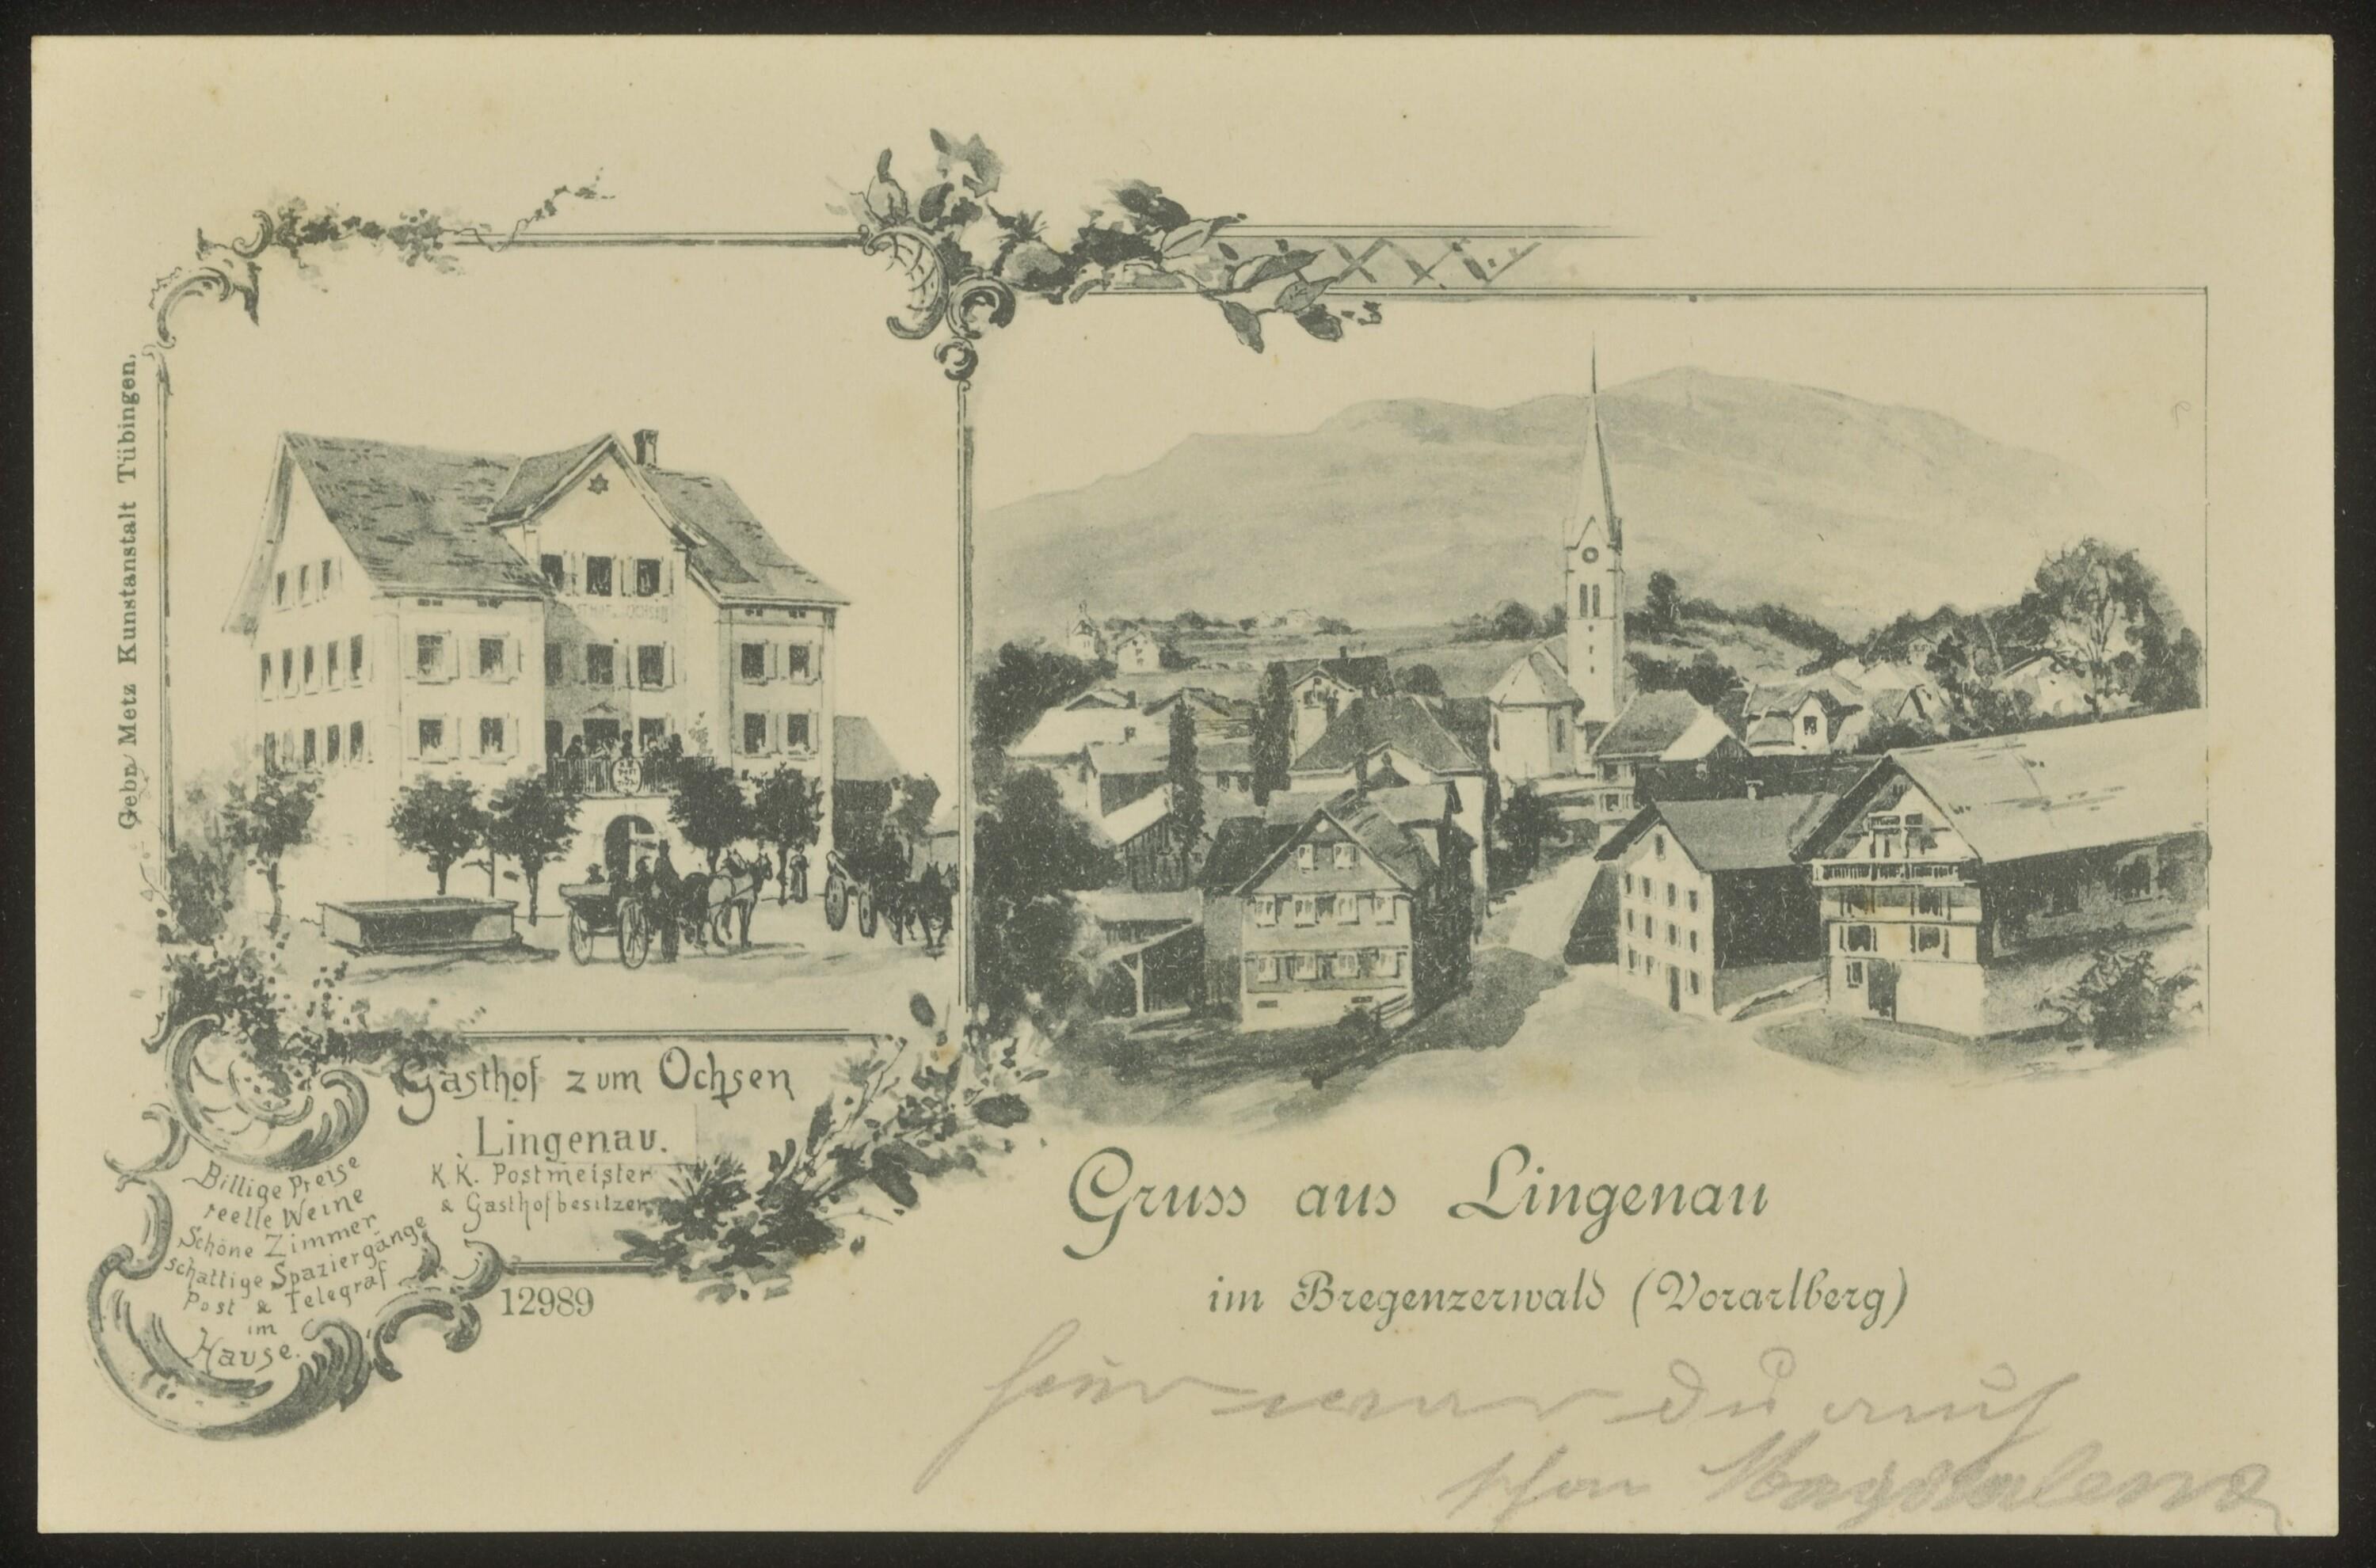 Gebr. Metz Kunstanstalt Tübingen,
Gasthof zum Ochsen
Lingenau.
K.K. Postmeister
& Gasthofbesitzer
Billige Preise
reelle Weine
Schöne Zimmer
schattige Spaziergänge
Post & Telegraf
im
Hause.
12989
Gruss aus Lingenau
im Bregenzerwald (Vorarlberg)
war du auch
schon Magdalena